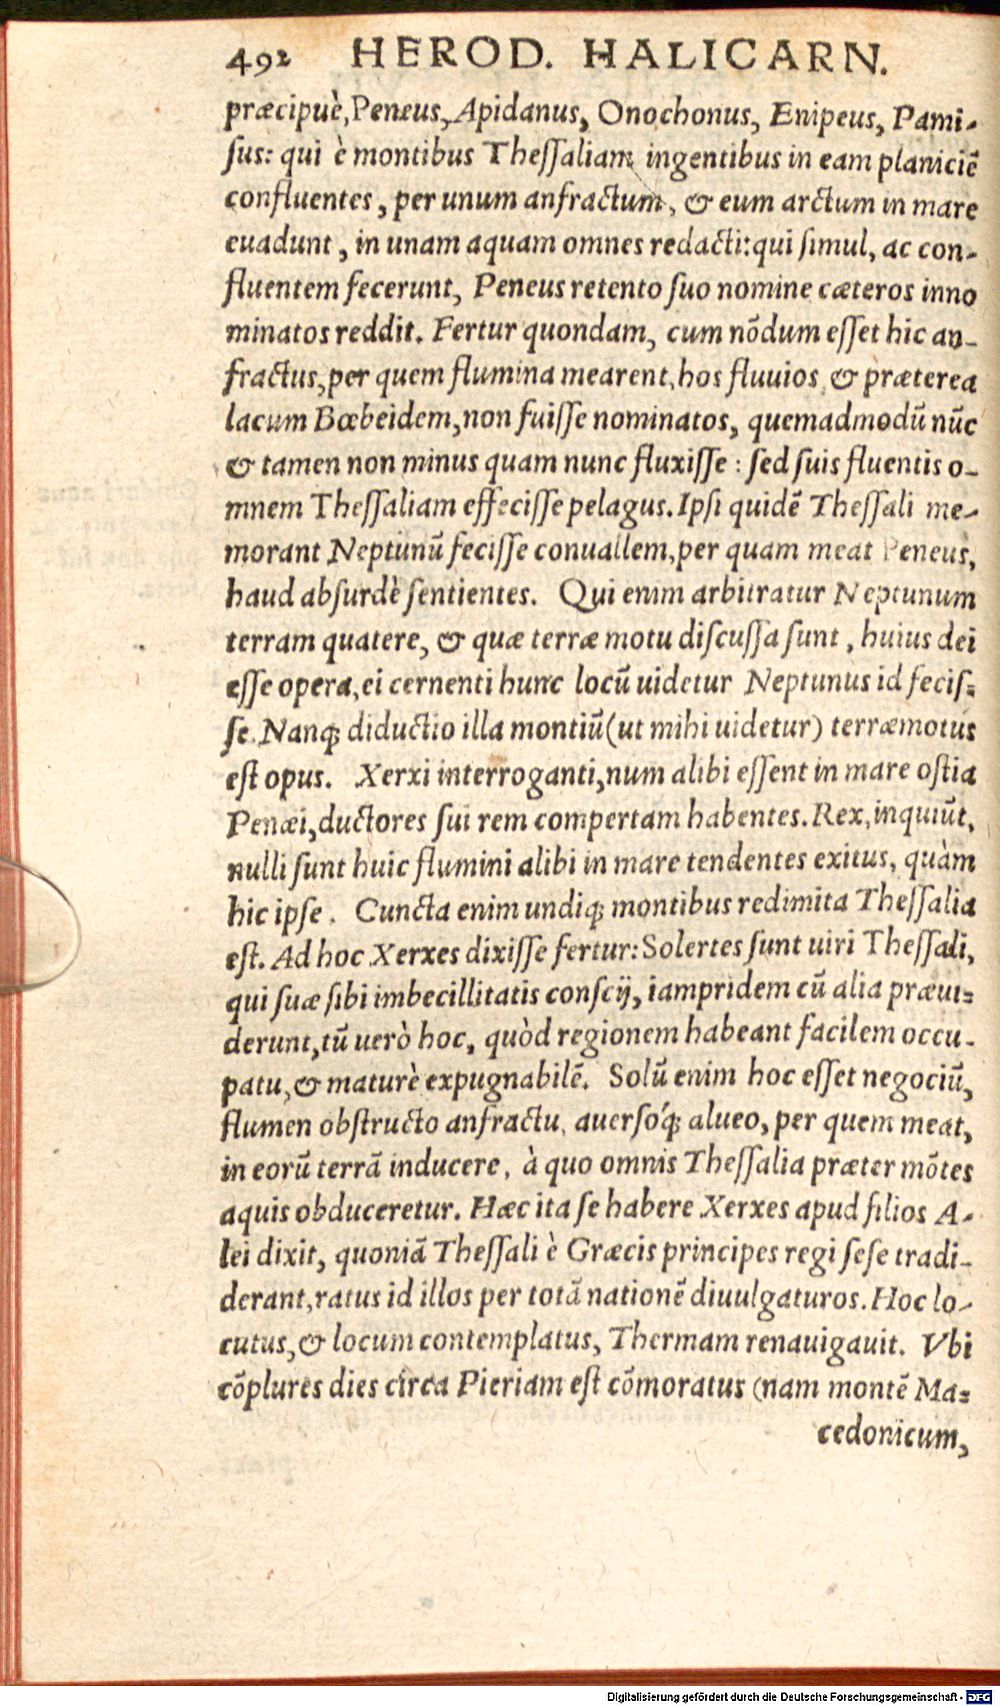 492 HEROD. HALICARN.
præcipuè, Peneus, Apidanus, Onochonus, Enipeus, Pami-
ſus: qui è montibus Theſſaliam ingentibus in eam planiciē
confluentes, per unum anfractum, & eum arctum in mare
euadunt, in unam aquam omnes redacti: qui ſimul, ac con-
fluentem fecerunt, Peneus retento ſuo nomine cæteros inno
minatos reddit. Fertur quondam, cum nōdum eſſet hic an-
fractus, per quem flumina mearent, hos fluuios, & præterea
lacum Bœbeidem, non fuiſſe nominatos, quemadmodū nūc
& tamen non minus quam nunc fluxiſſe: ſed ſuis fluentis o-
mnem Theſſaliam effeciſſe pelagus. Ipſi quidē Theſſali me-
morant Neptunū feciſſe conuallem, per quam meat Peneus,
haud abſurdè ſentientes. Qui enim arbitratur Neptunum
terram quatere, & quæ terræ motu diſcuſſa ſunt, huius dei
eſſe opera, ei cernenti hunc locū uidetur Neptunus id feciſ-
ſe. Nanq; diductio illa montiū (ut mihi uidetur) terræmotus
eſt opus. Xerxi interroganti, num alibi eſſent in mare oſtia
Penæi, ductores ſui rem compertam habentes. Rex, inquiūt,
nulli ſunt huic flumini alibi in mare tendentes exitus, quàm
hic ipſe. Cuncta enim undiq; montibus redimita Theſſalia
eſt. Ad hoc Xerxes dixiſſe fertur: Solertes ſunt uiri Theſſali,
qui ſuæ ſibi imbecillitatis conſcij, iampridem cū alia præui-
derunt, tū uerò hoc, quòd regionem habeant facilem occu-
patu, & maturè expugnabilē. Solū enim hoc eſſet negociū,
flumen obſtructo anfractu, auerſóq; alueo, per quem meat,
in eorū terrā inducere, à quo omnis Theſſalia præter mōtes
aquis obduceretur. Hæc ita ſe habere Xerxes apud filios A-
lei dixit, quoniā Theſſali è Græcis principes regi ſeſe tradi-
derant, ratus id illos per totā nationē diuulgaturos. Hoc lo-
cutus, & locum contemplatus, Thermam renauigauit. Vbi
cōplures dies circa Pieriam eſt cōmoratus (nam montē Ma-
cedonicum,
Digitalisierung gefördert durch die Deutsche Forschungsgemeinschaft - DFG